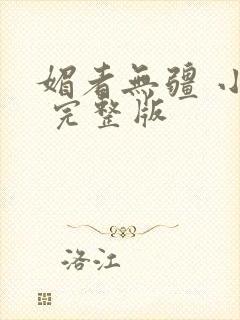 媚者無疆 小
完整版
洛江